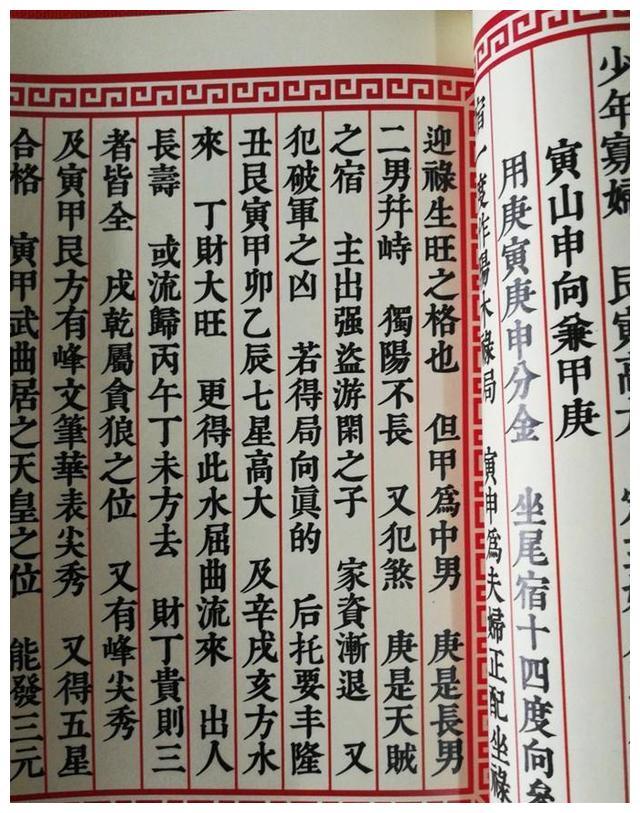 少年寡婦 艮寅高大
寅山申向兼甲庚
用庚寅庚申分金 坐尾宿十四度向參
宿一度作陽水祿局 寅申爲夫婦正配坐祿
迎祿生旺之格也 但甲爲中男 庚是長男
二男幷峙 獨陽不長 又犯煞 庚是天賊
之宿 主出强盜游閑之子 家資漸退 又
犯破軍之凶 若得局向眞的 后托要丰隆
丑艮寅甲卯乙辰七星高大 及辛戌亥方水
來 丁財大旺 更得此水屈曲流來 出人
長壽 或流歸丙午丁未方去 財丁貴則三
者皆全 戌乾屬貪狼之位 又有峰尖秀
及寅甲艮方有峰文筆華表尖秀 又得五星
合格 寅甲武曲居之天皇之位 能發三元